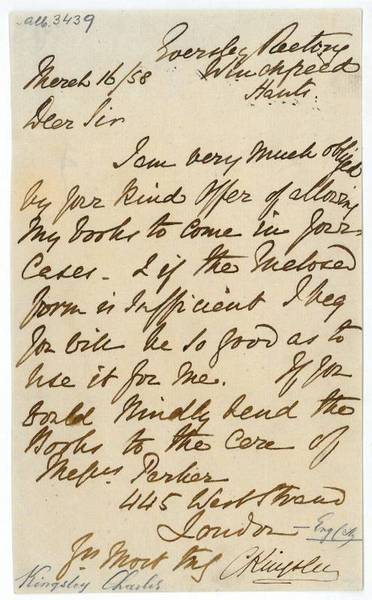 alb. 3439
Eversley Rectory
Winchfield
Hants.
March 16/58
Dear Sir
I am very much obliged
by your kind offer of allowing
my books to come in your
cases. & if the enclosed
form is sufficient I beg
you will be so good as to
use it for me. If you
would kindly send the
Books to the care of
Messrs. Parker
445 West Strand
London
Yrs most
CKingsley
Kingsley Charles